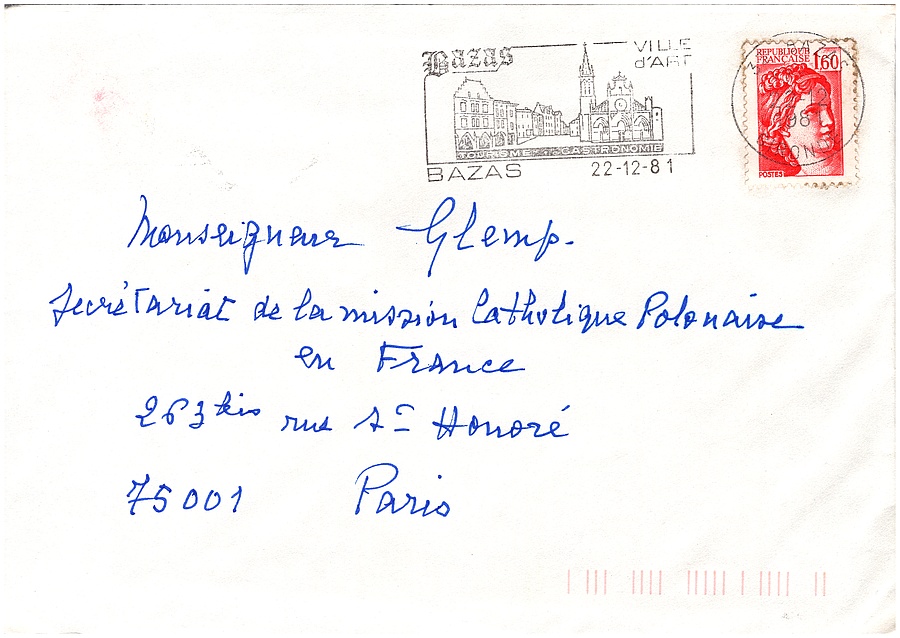 Bazas
VILLE
d'ART
TOURISME GASTRONOMIE
BAZAS 22-12-81
REPUBLIQUE
FRANÇAISE 1,60
POSTES
Monseigneur Glemp.
Secrétariat de la mission Catholique Polonaise
en France
263 bis rue St Honoré
75001 Paris